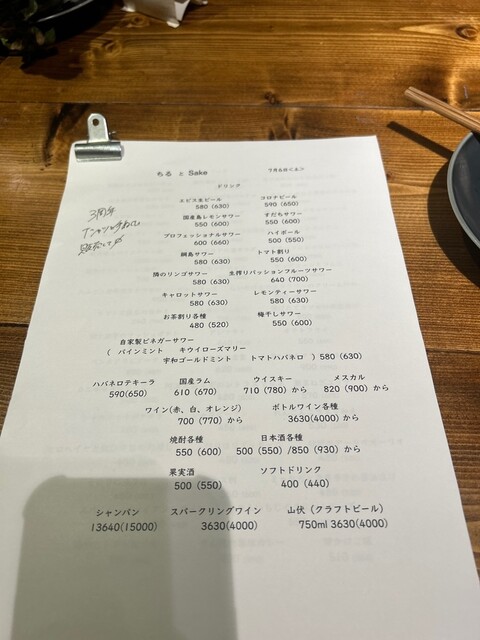 ちる と Sake 7月6日<土>
ドリンク
3周年
Tシャツ
販売してます
エビス生ビール コロナビール
580 (630) 590 (650)
国産島レモンサワー すだちサワー
550 (600) 550 (600)
プロフェッショナルサワー ハイボール
600 (660) 500 (550)
綱島サワー トマト割り
580 (630) 550 (600)
隣のリンゴサワー 生搾りパッションフルーツサワー
580 (630) 640 (700)
キャロットサワー レモンティーサワー
580 (630) 580 (630)
お茶割り各種 梅干しサワー
480 (520) 550 (600)
自家製ビネガーサワー
( パインミント キウイローズマリー
宇和ゴールドミント トマトハバネロ ) 580 (630)
ハバネロテキーラ 国産ラム ウイスキー メスカル
590(650) 610 (670) 710 (780) から 820 (900) から
ワイン(赤、白、オレンジ) ボトルワイン各種
700 (770) から 3630(4000) から
焼酎各種 日本酒各種
550 (600) 500 (550) /850 (930) から
果実酒 ソフトドリンク
500 (550) 400 (440)
シャンパン スパークリングワイン 山伏 (クラフトビール)
13640(15000) 3630(4000) 750ml 3630(4000)